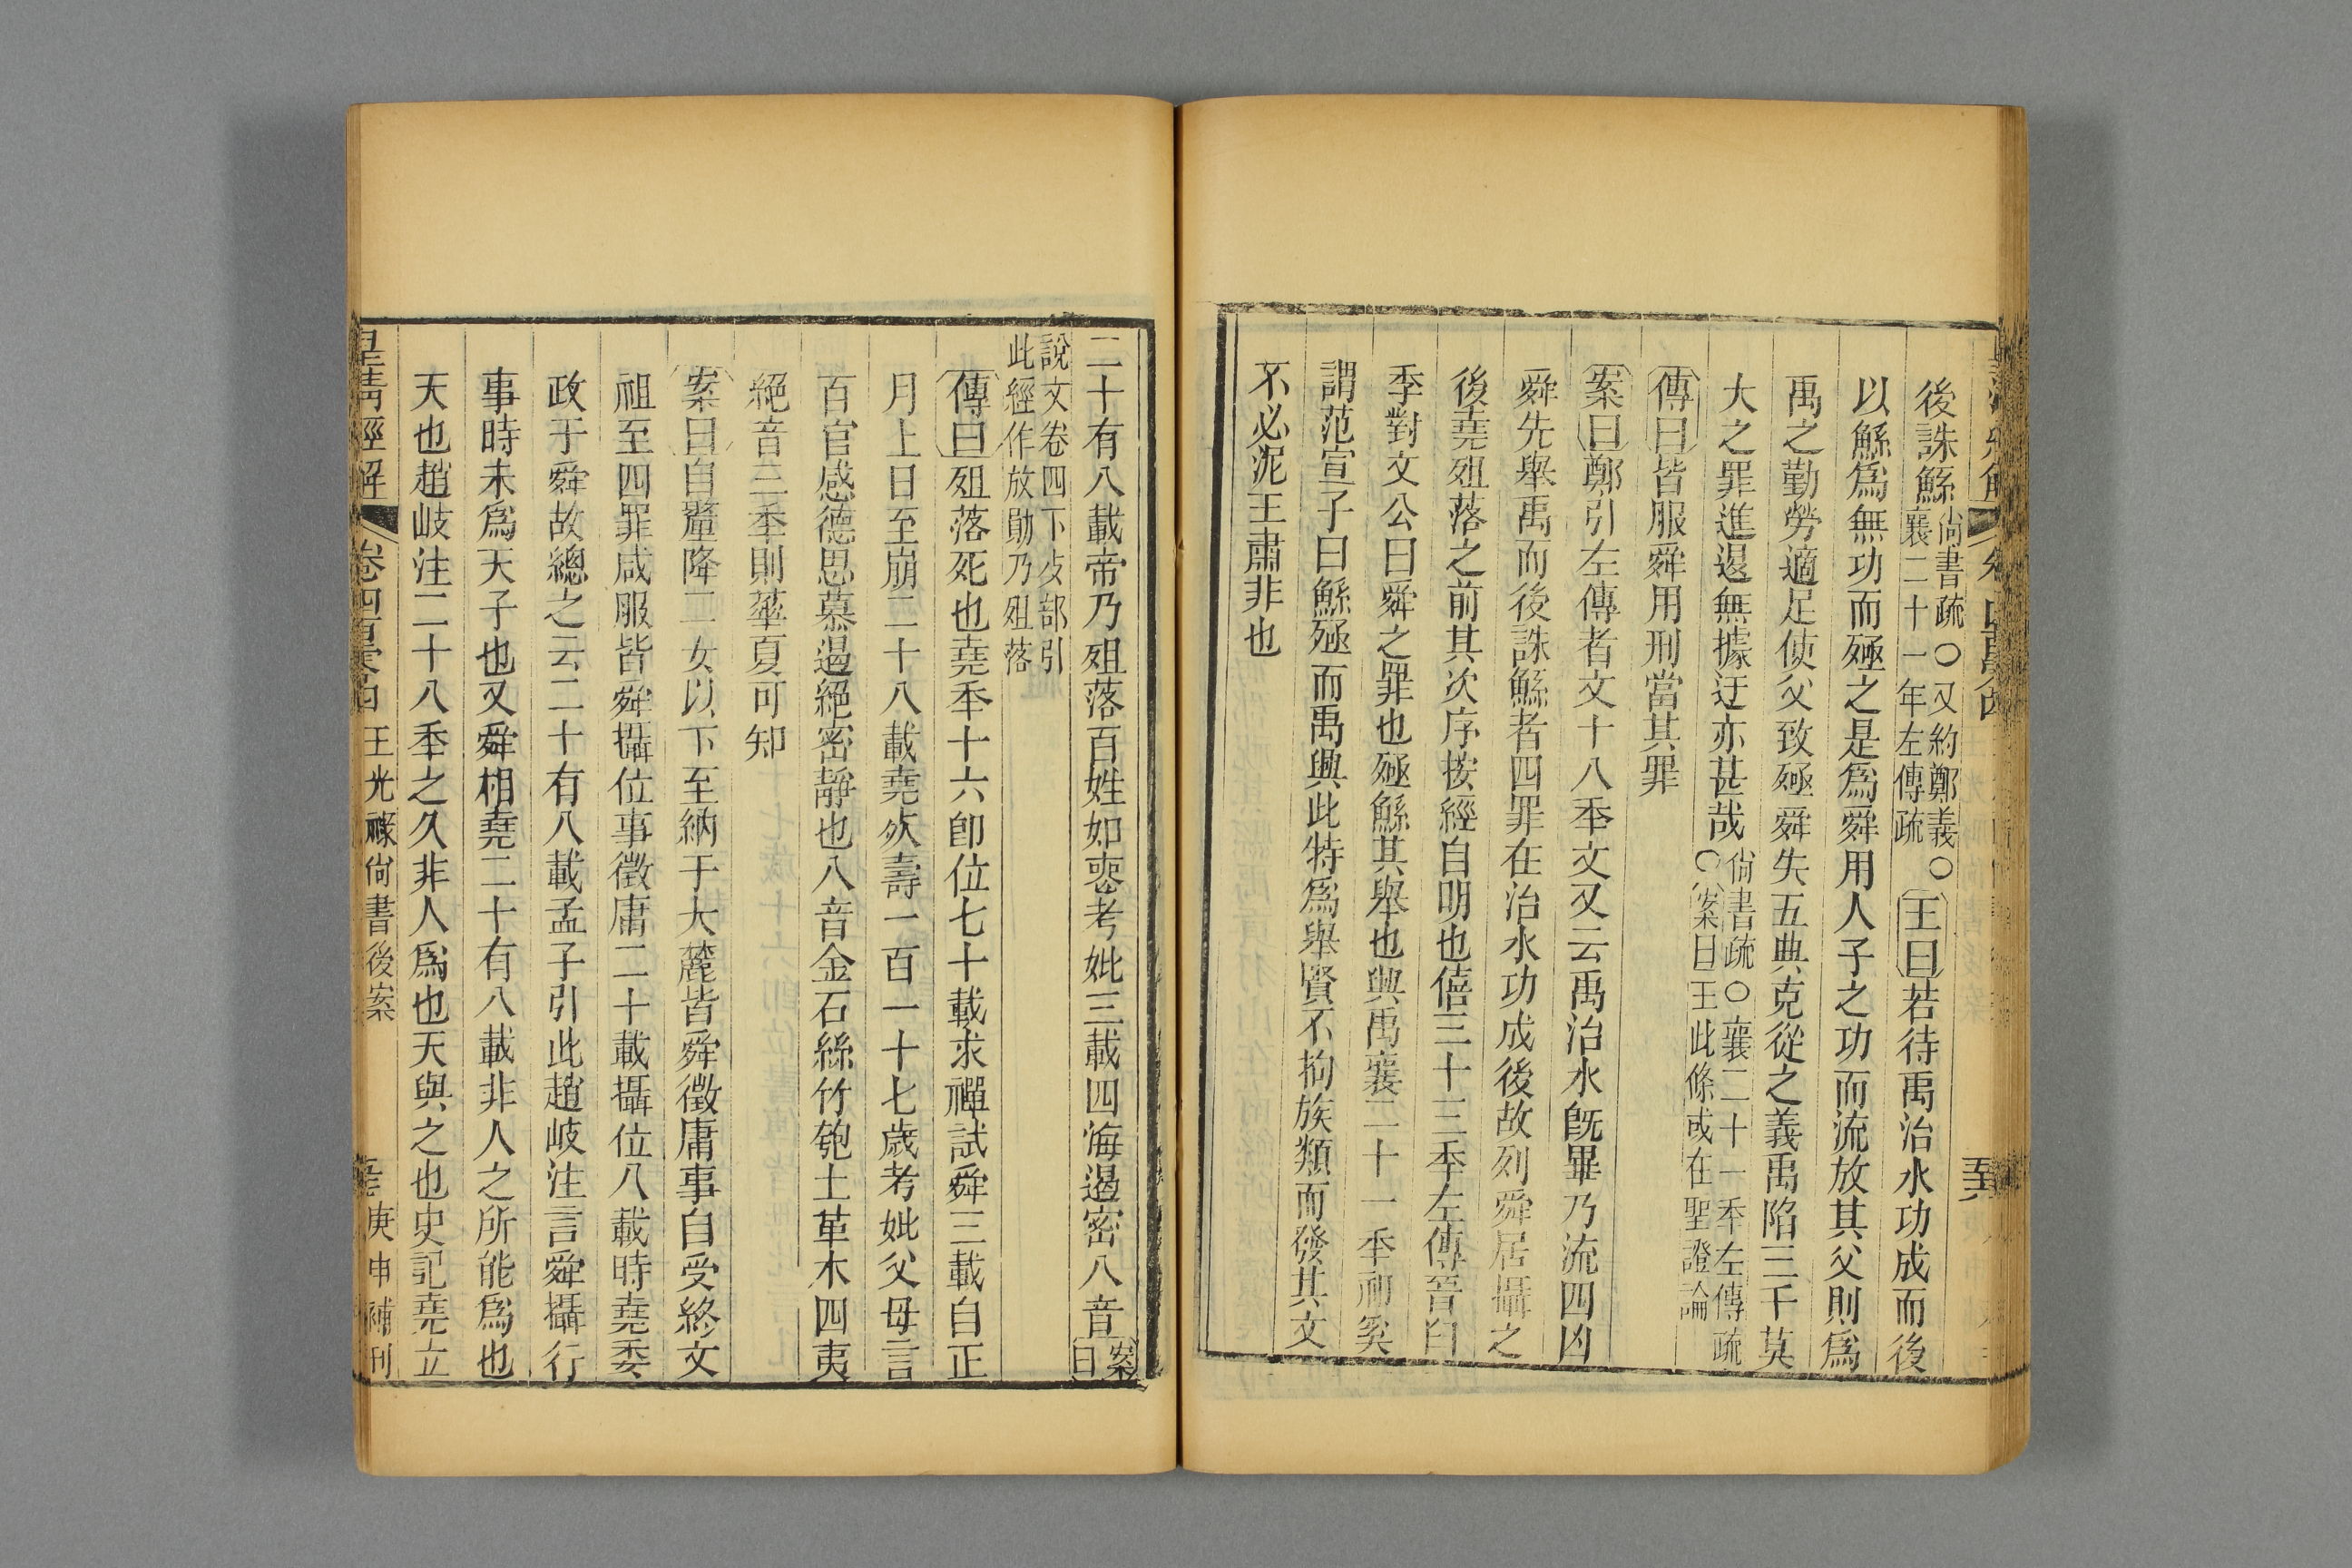 後誅鯀尙書疏○又約鄭義○襄二十一年左傳疏王曰若待禹治水功成而後
以鯀爲無功而殛之是爲舜用人子之功而流放其父則爲
禹之勤勞適足使父致殛舜失五典克從之義禹陷三千莫
大之罪進退無據迂亦甚哉尙書疏○襄二十一秊左傳疏○案曰王此條或在聖證論
傳曰皆服舜用刑當其罪
案曰鄭引左傳者文十八秊文又云禹治水旣畢乃流四凶
舜先舉禹而後誅鯀者四罪在治水功成後故列舜居攝之
後堯殂落之前其次序按經自明也僖三十三秊左傳晉臼
季對文公曰舜之罪也殛鯀其舉也興禹襄二十一秊祁奚
謂范宣子曰鯀殛而禹興此特爲舉賢不拘族類而發其文
不必泥王肅非也
二十有八載帝乃殂落百姓如喪考妣三載四海遏密八音案曰
說文卷四下歺部引此經作放勛乃殂落
傳曰殂落死也堯秊十六卽位七十載求禪試舜三載自正
月上日至崩二十八載堯死壽一百一十七歲考妣父母言
百官感德思慕遏絕密靜也八音金石絲竹匏土革木四夷
絕音三秊則華夏可知
案曰自釐降二女以下至納于大麓皆舜徵庸事自受終文
祖至四罪咸服皆舜攝位事徵庸二十載攝位八載時堯委
政于舜故總之云二十有八載孟子引此趙岐注言舜攝行
事時未爲天子也又舜相堯二十有八載非人之所能爲也
天也趙岐注二十八秊之久非人爲也天與之也史記堯立
皇淸經解 卷四百 王光祿尙書後案 庚申補刊